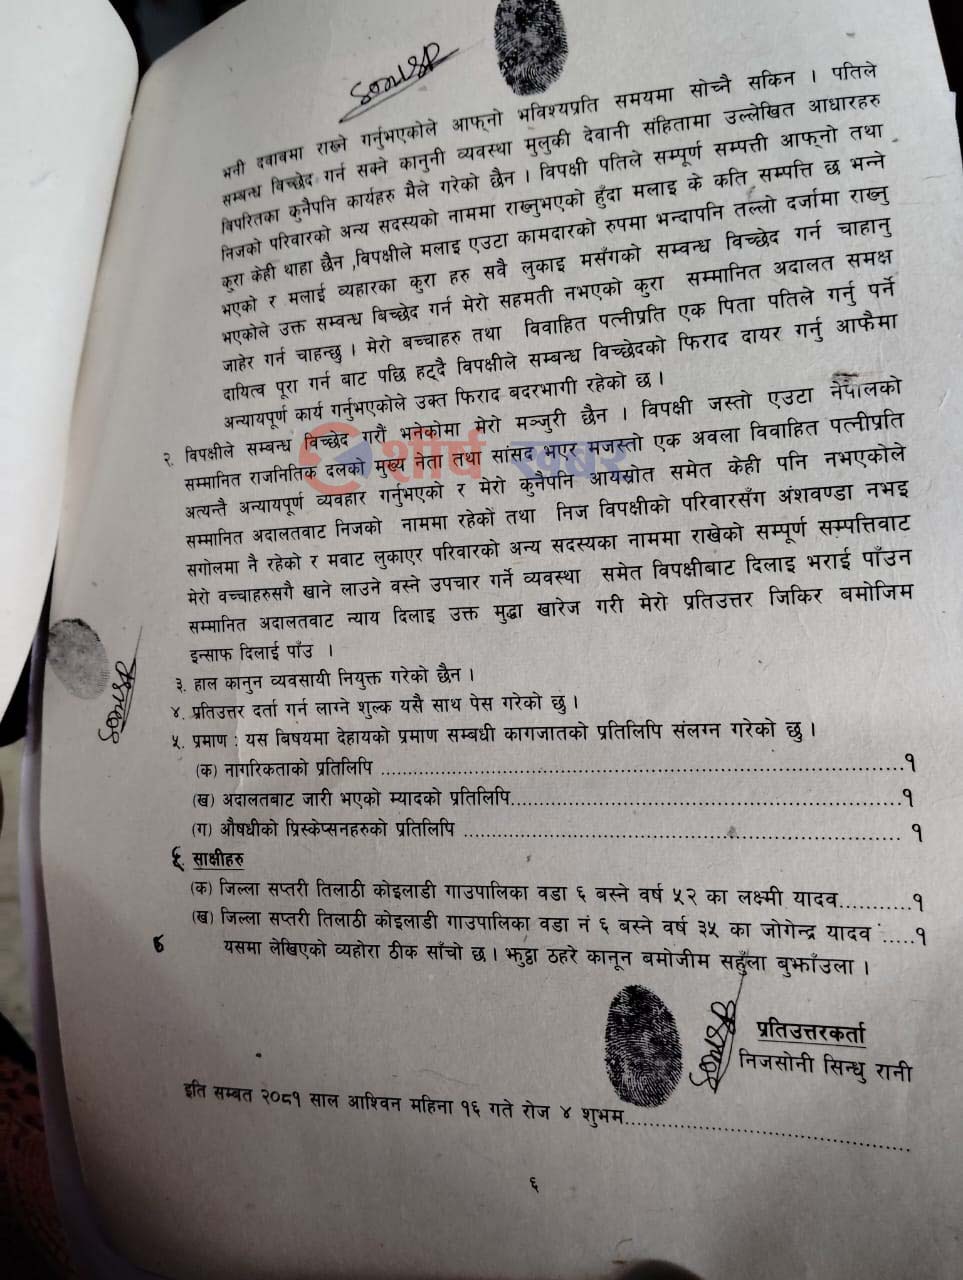 भनी दवावमा राख्ने गर्नुभएकोले आफ्नो भविश्यप्रति समयमा सोच्नै सकिन । पतिले
सम्बन्ध विच्छेद गर्न सक्ने कानुनी व्यवस्था मुलुकी देवानी संहितामा उल्लेखित आधारहरु
बिपरितका कुनैपनि कार्यहरु मैले गरेको छैन । विपक्षी पतिले सम्पूर्ण सम्पत्ती आफ्नो तथा
निजको परिवारको अन्य सदस्यको नाममा राख्नुभएको हुँदा मलाइ के कति सम्पत्ति छ भन्ने
कुरा केही थाहा छैन ,विपक्षीले मलाइ एउटा कामदारको रुपमा भन्दापनि तल्लो दर्जामा राख्नु
भएको र मलाई व्यहारका कुरा हरु सवै लुकाइ मसँगको सम्वन्ध विच्छेद गर्न चाहानु
भएकोले उक्त सम्वन्ध बिच्छेद गर्न मेरो सहमती नभएको कुरा सम्मानित अदालत समक्ष
जाहेर गर्न चाहन्छु । मेरो बच्चाहरु तथा विवाहित पत्नीप्रति एक पिता पतिले गर्नु पर्ने
दायित्व पूरा गर्न बाट पछि हट्दै विपक्षीले सम्बन्ध विच्छेदको फिराद दायर गर्नु आफैमा
अन्यायपूर्ण कार्य गर्नुभएकोले उक्त फिराद बदरभागी रहेको छ ।
२. विपक्षीले सम्बन्ध विच्छेद गरौं भनेकोमा मेरो मञ्जुरी छैन । विपक्षी जस्तो एउटा नेपालको
सम्मानित राजनितिक दलको मुख्य नेता तथा सांसद भएर मजस्तो एक अवला विवाहित पत्नीप्रति
शीर्ष खबर
अत्यन्तै अन्यायपूर्ण व्यवहार गर्नुभएको र मेरो कुनैपनि आयस्रोत समेत केही पनि नभएकोले
सम्मानित अदालतवाट निजको नाममा रहेको तथा निज विपक्षीको परिवारसँग अंशवण्डा नभइ
सगोलमा नै रहेको र मवाट लुकाएर परिवारको अन्य सदस्यका नाममा राखेको सम्पूर्ण सम्पत्तिवाट
मेरो वच्चाहरुसगै खाने लाउने वस्ने उपचार गर्ने व्यवस्था समेत विपक्षीबाट दिलाइ भराई पाँउन
सम्मानित अदालतवाट न्याय दिलाइ उक्त मुद्धा खारेज गरी मेरो प्रतिउत्तर जिकिर बमोजिम
इन्साफ दिलाई पाँउ ।
३. हाल कानुन व्यवसायी नियुक्त गरेको छैन ।
४. प्रतिउत्तर दर्ता गर्न लाग्ने शुल्क यसै साथ पेस गरेको छु ।
५. प्रमाण : यस बिषयमा देहायको प्रमाण सम्बधी कागजातको प्रतिलिपि संलग्न गरेको छु ।
(क) नागरिकताको प्रतिलिपि ........................................................१
(ख) अदालतबाट जारी भएको म्यादको प्रतिलिपि..........................................१
(ग) औषधीको प्रिस्केप्सनहरुको प्रतिलिपि ................................................ १
६. साक्षीहरु
(क) जिल्ला सप्तरी तिलाठी कोइलाडी गाउपालिका वडा ६ बस्ने वर्ष ५२ का लक्ष्मी यादव..........१
(ख) जिल्ला सप्तरी तिलाठी कोइलाडी गाउपालिका वडा नं ६ बस्ने वर्ष ३५ का जोगेन्द्र यादव .....१
यसमा लेखिएको व्यहोरा ठीक साँचो छ । झुट्ठा ठहरे कानून बमोजीम सहुँला बुझाँउला ।
प्रतिउत्तरकर्ता
निजसोनी सिन्धु रानी
इति सम्बत २०८१ साल आश्विन महिना १६ गते रोज ४ शुभम............................
६